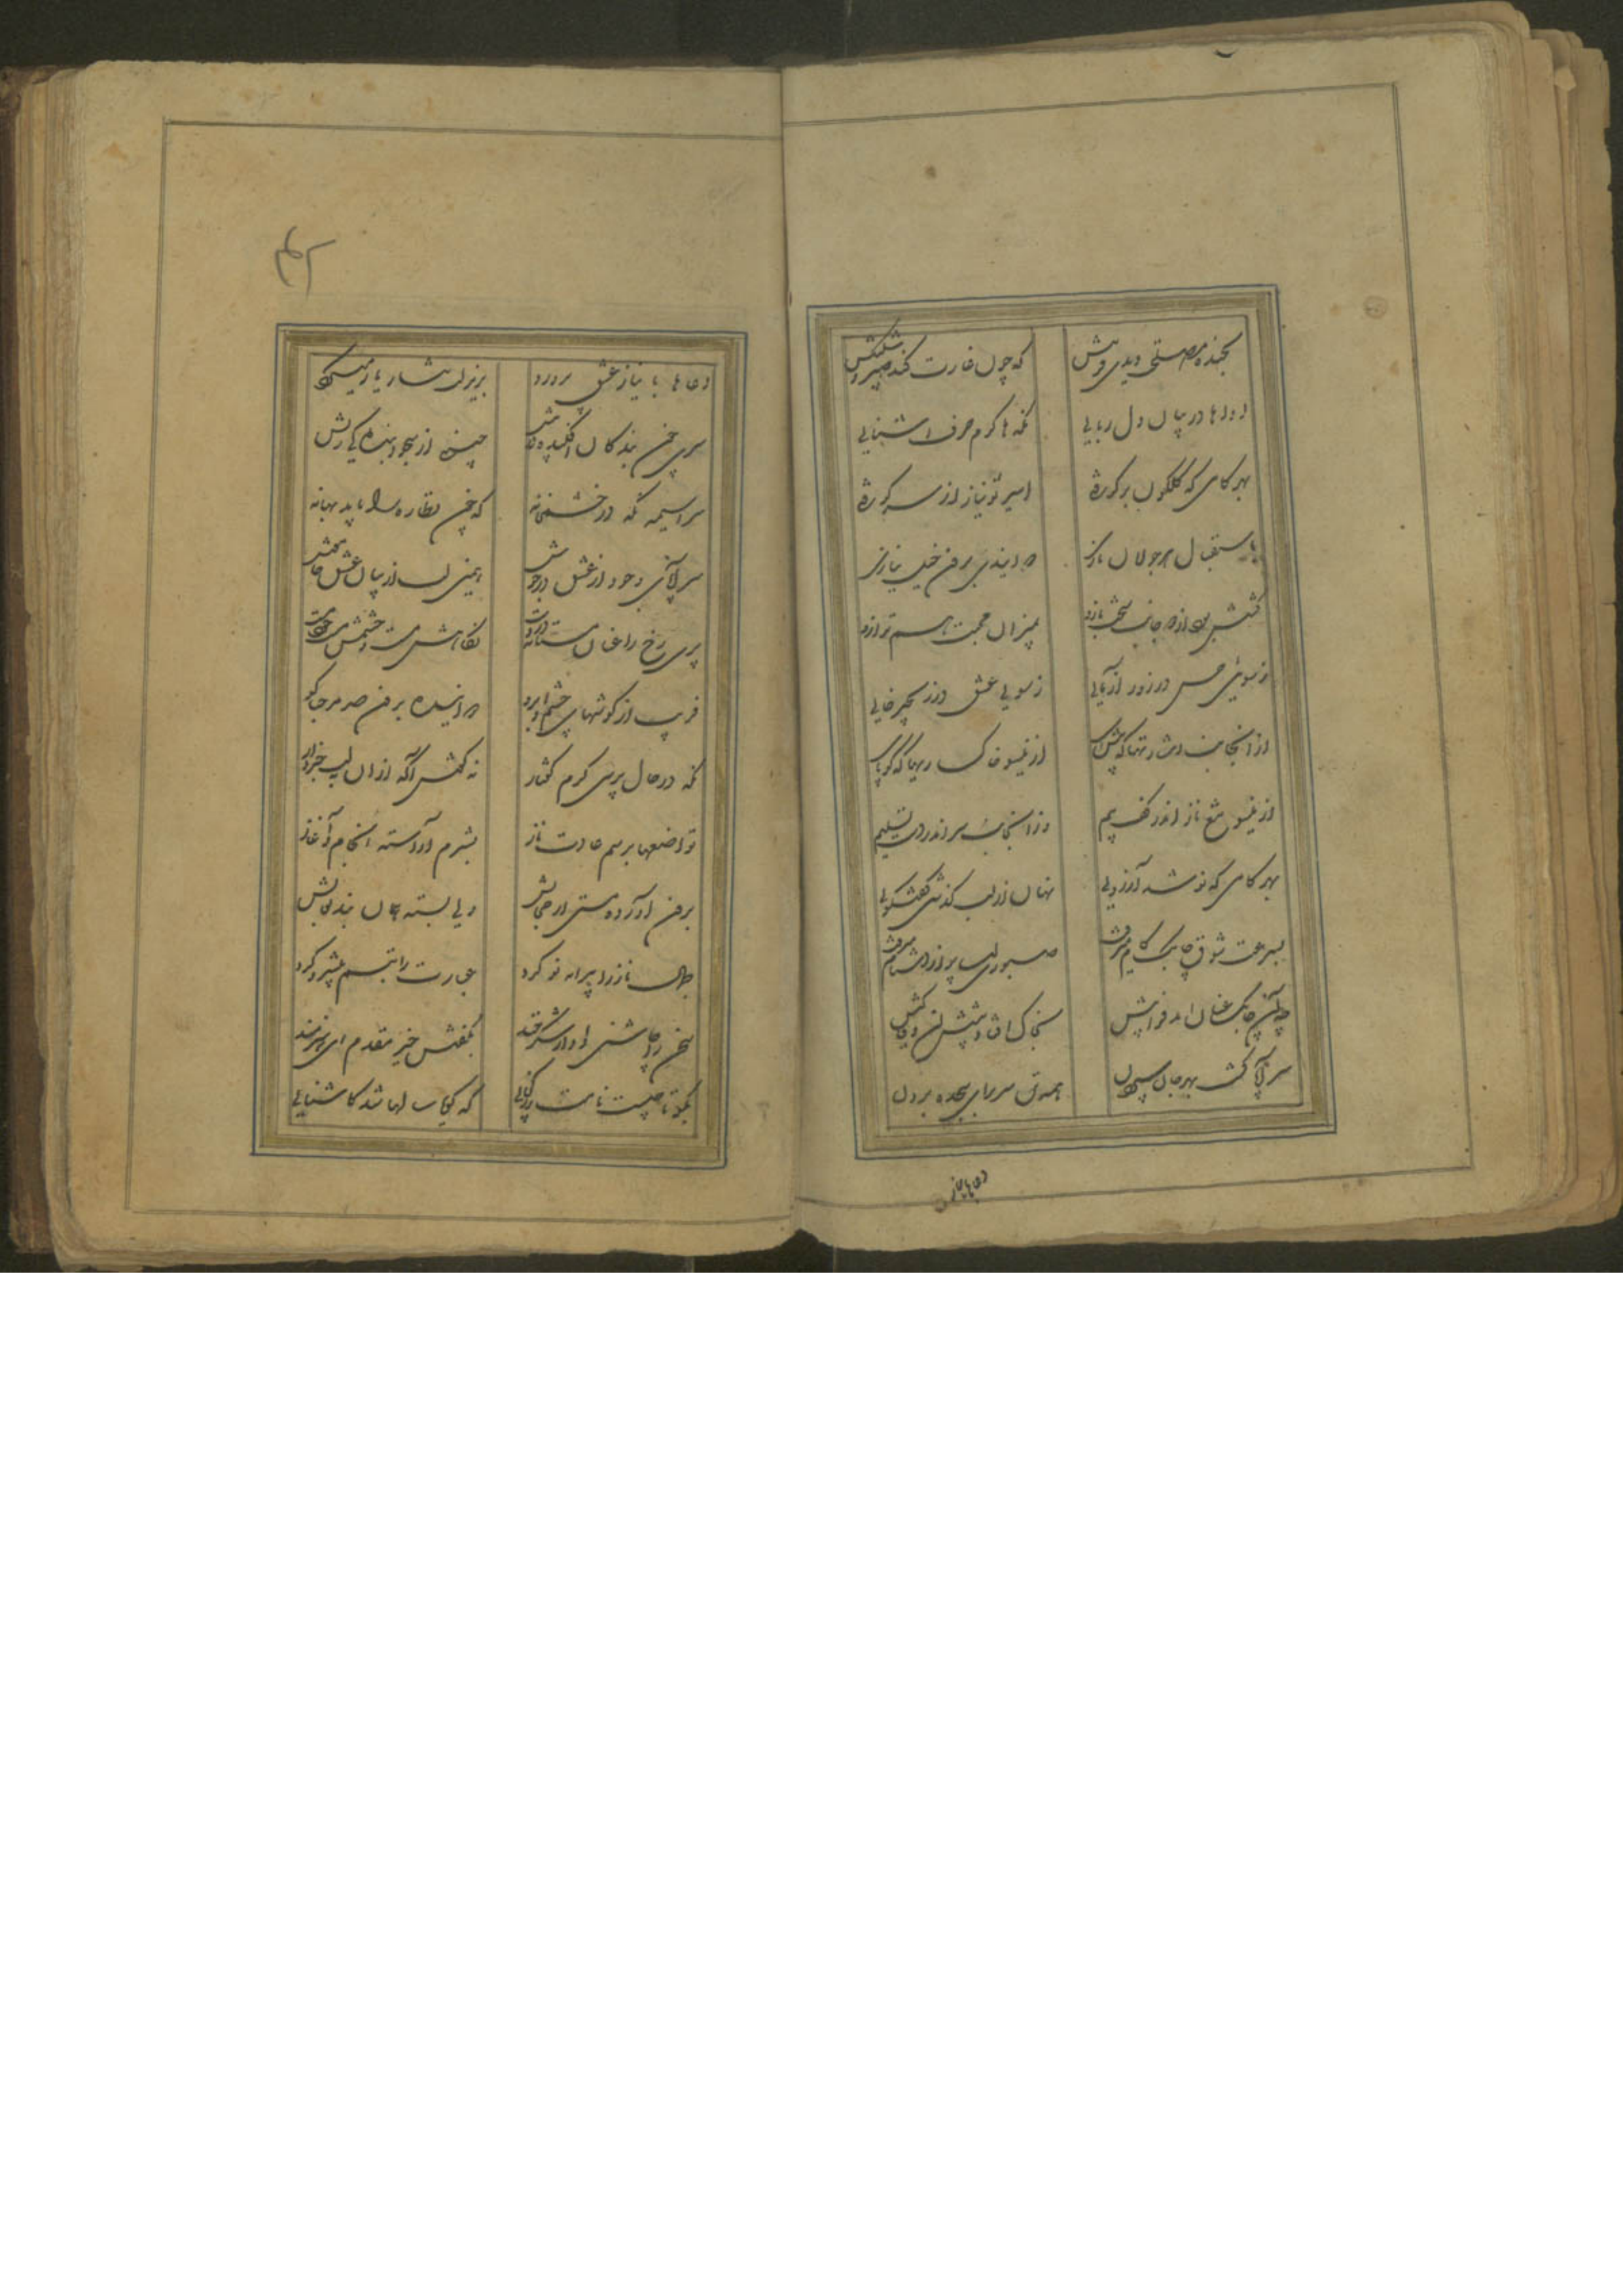 بخنده مصلحتی دیدی فسونش که چون غارت کند صبر و سکونش
اداها در بیان دل ربایی نگه ها گرم حرف اشنایی
بهر گامی که گلگون برگرفتی اسیر نو نیاز از سر گرفتی
باستقبال هر جولان نازی دوانیدی برون خیل نیازی
کشش بود از دو جانب سخت بازو بمیزان محبت هم ترازو
ز سویی حسن در زور آزمایی ز سویی عشق در زنجیر خایی
از انجانب اشارتها که پیش آی ازینسو خاکساریها که کو پای
ازینسو تیغ ناز اندر کف بیم وز انجانب سر اندر دست تسلیم
بهر گامی که نوشد آرزویی نهان از لب گذشتی گفتگویی
بسرعت شوق چابک گام میرفت صبوری لب پر از دشنام میرفت
چو آن چابک عنان امد فراپیش بخاک افتاد پیشش آن وفاکیش
سراپا گشت بهر جان سپردن همه تن سر برای سجده بردن
دعاها با نیاز
۴۲
دعاها با نیاز عشق پرورد بزیر لب نثار یار میکرد
سری چون بندگان افکنده در پیش جبین از سجده
سراسیمه نگه در چشمخانه که چون نظاره را یابد بهانه
سراپای وجود از عشق در جوش همین لب از بیان عشق خاموش
پری رخ را عنان مستانه در دست نگاهش مست و چشمش مست و خود مست
فریب از گوشهای چشم و ابرو دوانیده برون صد مرحبا گو
نگه در حال پرسی گرم گفتار نه گوشش آگه از ان لب خبردار
تواضعها برسم عادت ناز بشرم آراسته انجام و آغاز
برون آورده مستی از حجابش ولی بسته همان بند نقابش
جمال ناز را پیرایه نو کرد عبارت را تبسم پیشرو کرد
سخن را چاشنی داد از شکرخند بگفتش خیر مقدم ای هنرمند
بگو تا چیست نامت وز کجایی که گویا سالها شد کاشنایی